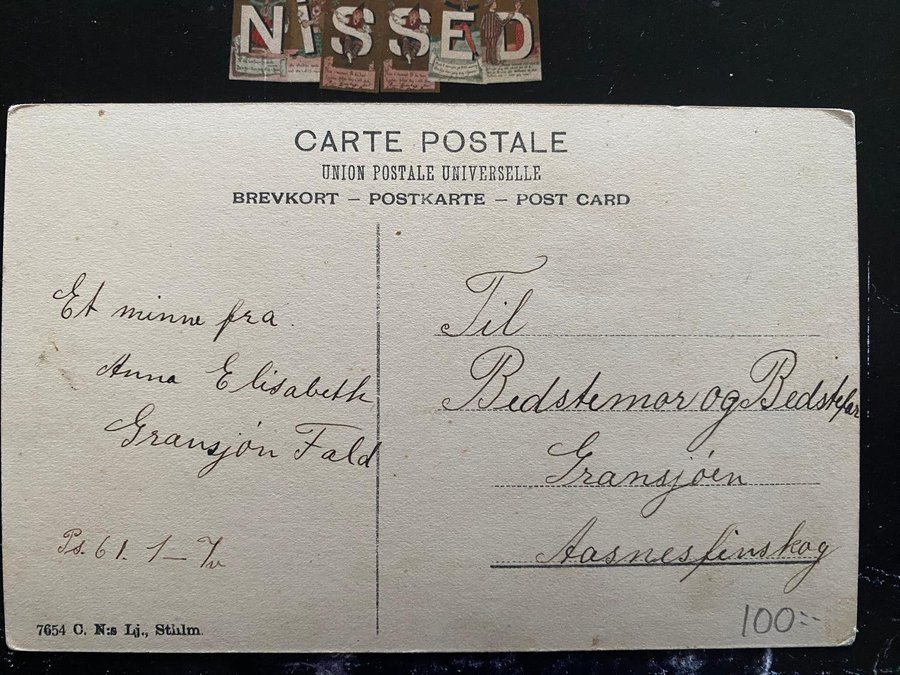 NISSED
CARTE POSTALE
UNION POSTALE UNIVERSELLE
BREVKORT – POSTKARTE – POST CARD
Et minne fra
Anna Elisabeth
Gransjøn Fald
Ps. 61. 1–7v
Til
Bedstemor og Bedstefar
Gransjøen
Aasnesfinskog
7654 C. N:s Lj., Sthlm.
100:-